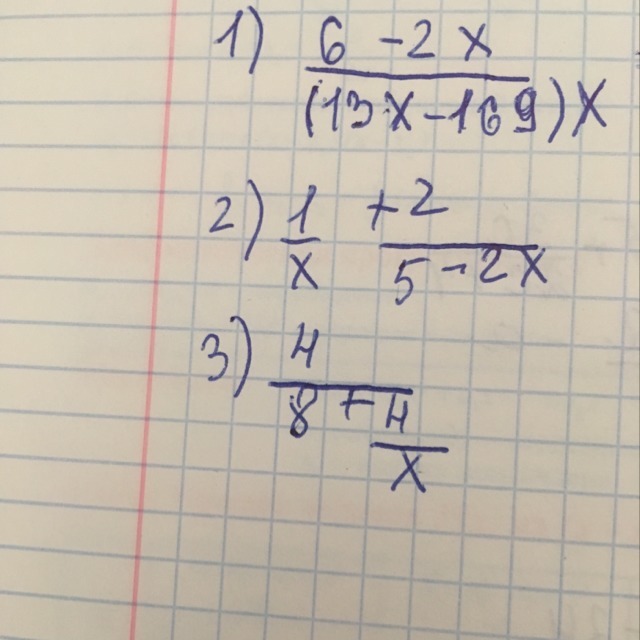 1) 6 - 2 x
(13x - 169) x
2) 1 + 2
x 5 - 2x
3) 4
8 + 4
x